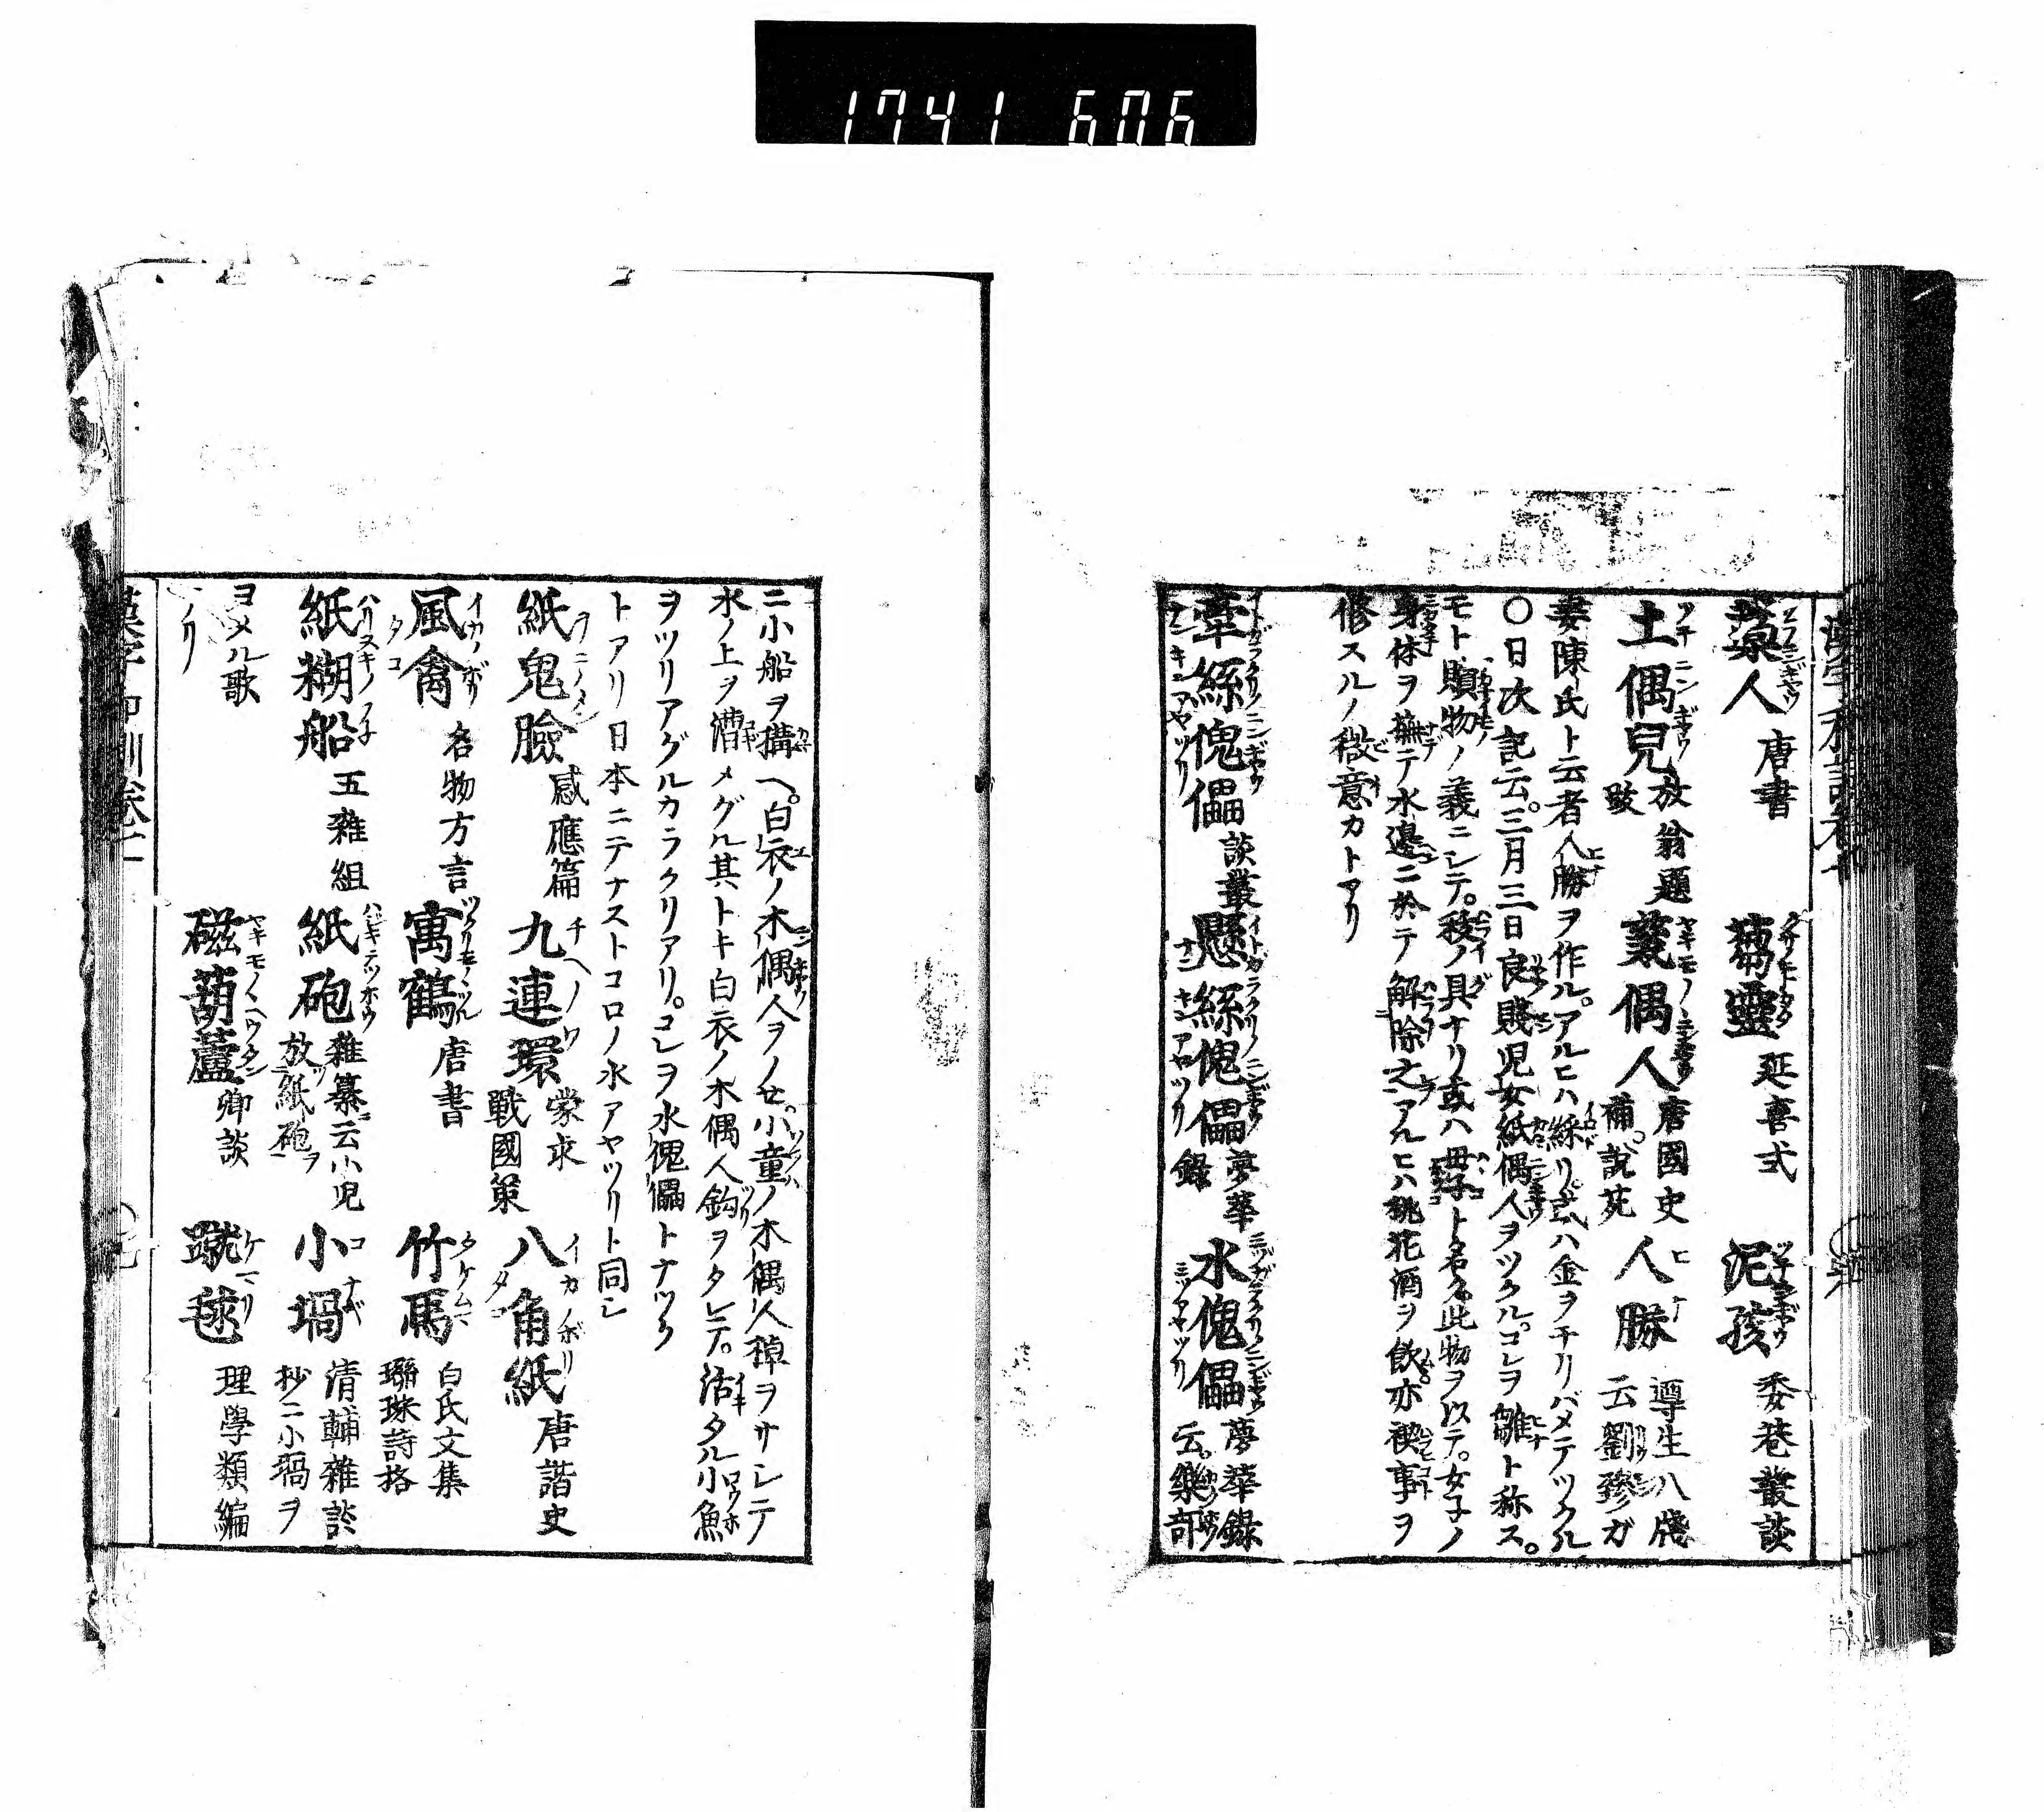 1741 606
藁人 唐書 芻靈 延喜式 泥孩 委巷叢談
土偶兒 放翁題跋 甆偶人 唐國史補說苑 人勝 遵生八牋云劉臻ガ
妻陳氏ト云者人勝ヲ作ル。アルヒハ綵リ或ハ金ヲチリバメテツクル
〇日次記云。三月三日良賤児女紙偶人ヲツクル。コレヲ雛ト称ス。
モト贖物ノ義ニシテ。祓ノ具ナリ或ハ母子ト名ク此物ヲ以テ。女子ノ
身体ヲ撫テ水邊ニ於テ解除之アルヒハ桃花酒ヲ飲亦禊事ヲ
修スルノ微意カトアリ
牽絲傀儡 談叢 懸絲傀儡 夢華錄 水傀儡 夢華錄云。樂部
ニ小船ヲ搆ヘ。白衣ノ木偶人ヲノセ。小童ノ木偶人棹ヲサシニテ
水ノ上ヲ漕メグル其トキ白衣ノ木偶人鈎ヲタレテ。活タル小魚
ヲツリアグルカラクリアリ。コレヲ水傀儡トナヅク
トアリ日本ニテナストコロノ水アヤツリト同シ
紙鬼臉 感應篇 九連環 蒙求 戰國策 八角紙 唐諧史
風禽 名物方言 寓鶴 唐書 竹馬 白氏文集 聯珠詩格
紙糊船 五雜組 紙砲 雜纂ニ云小児放紙砲ヲ 小堝 清輔雜談抄ニ小堝ヲ
ヨメル歌 磁葫蘆 卿談 蹴毬 理學類編